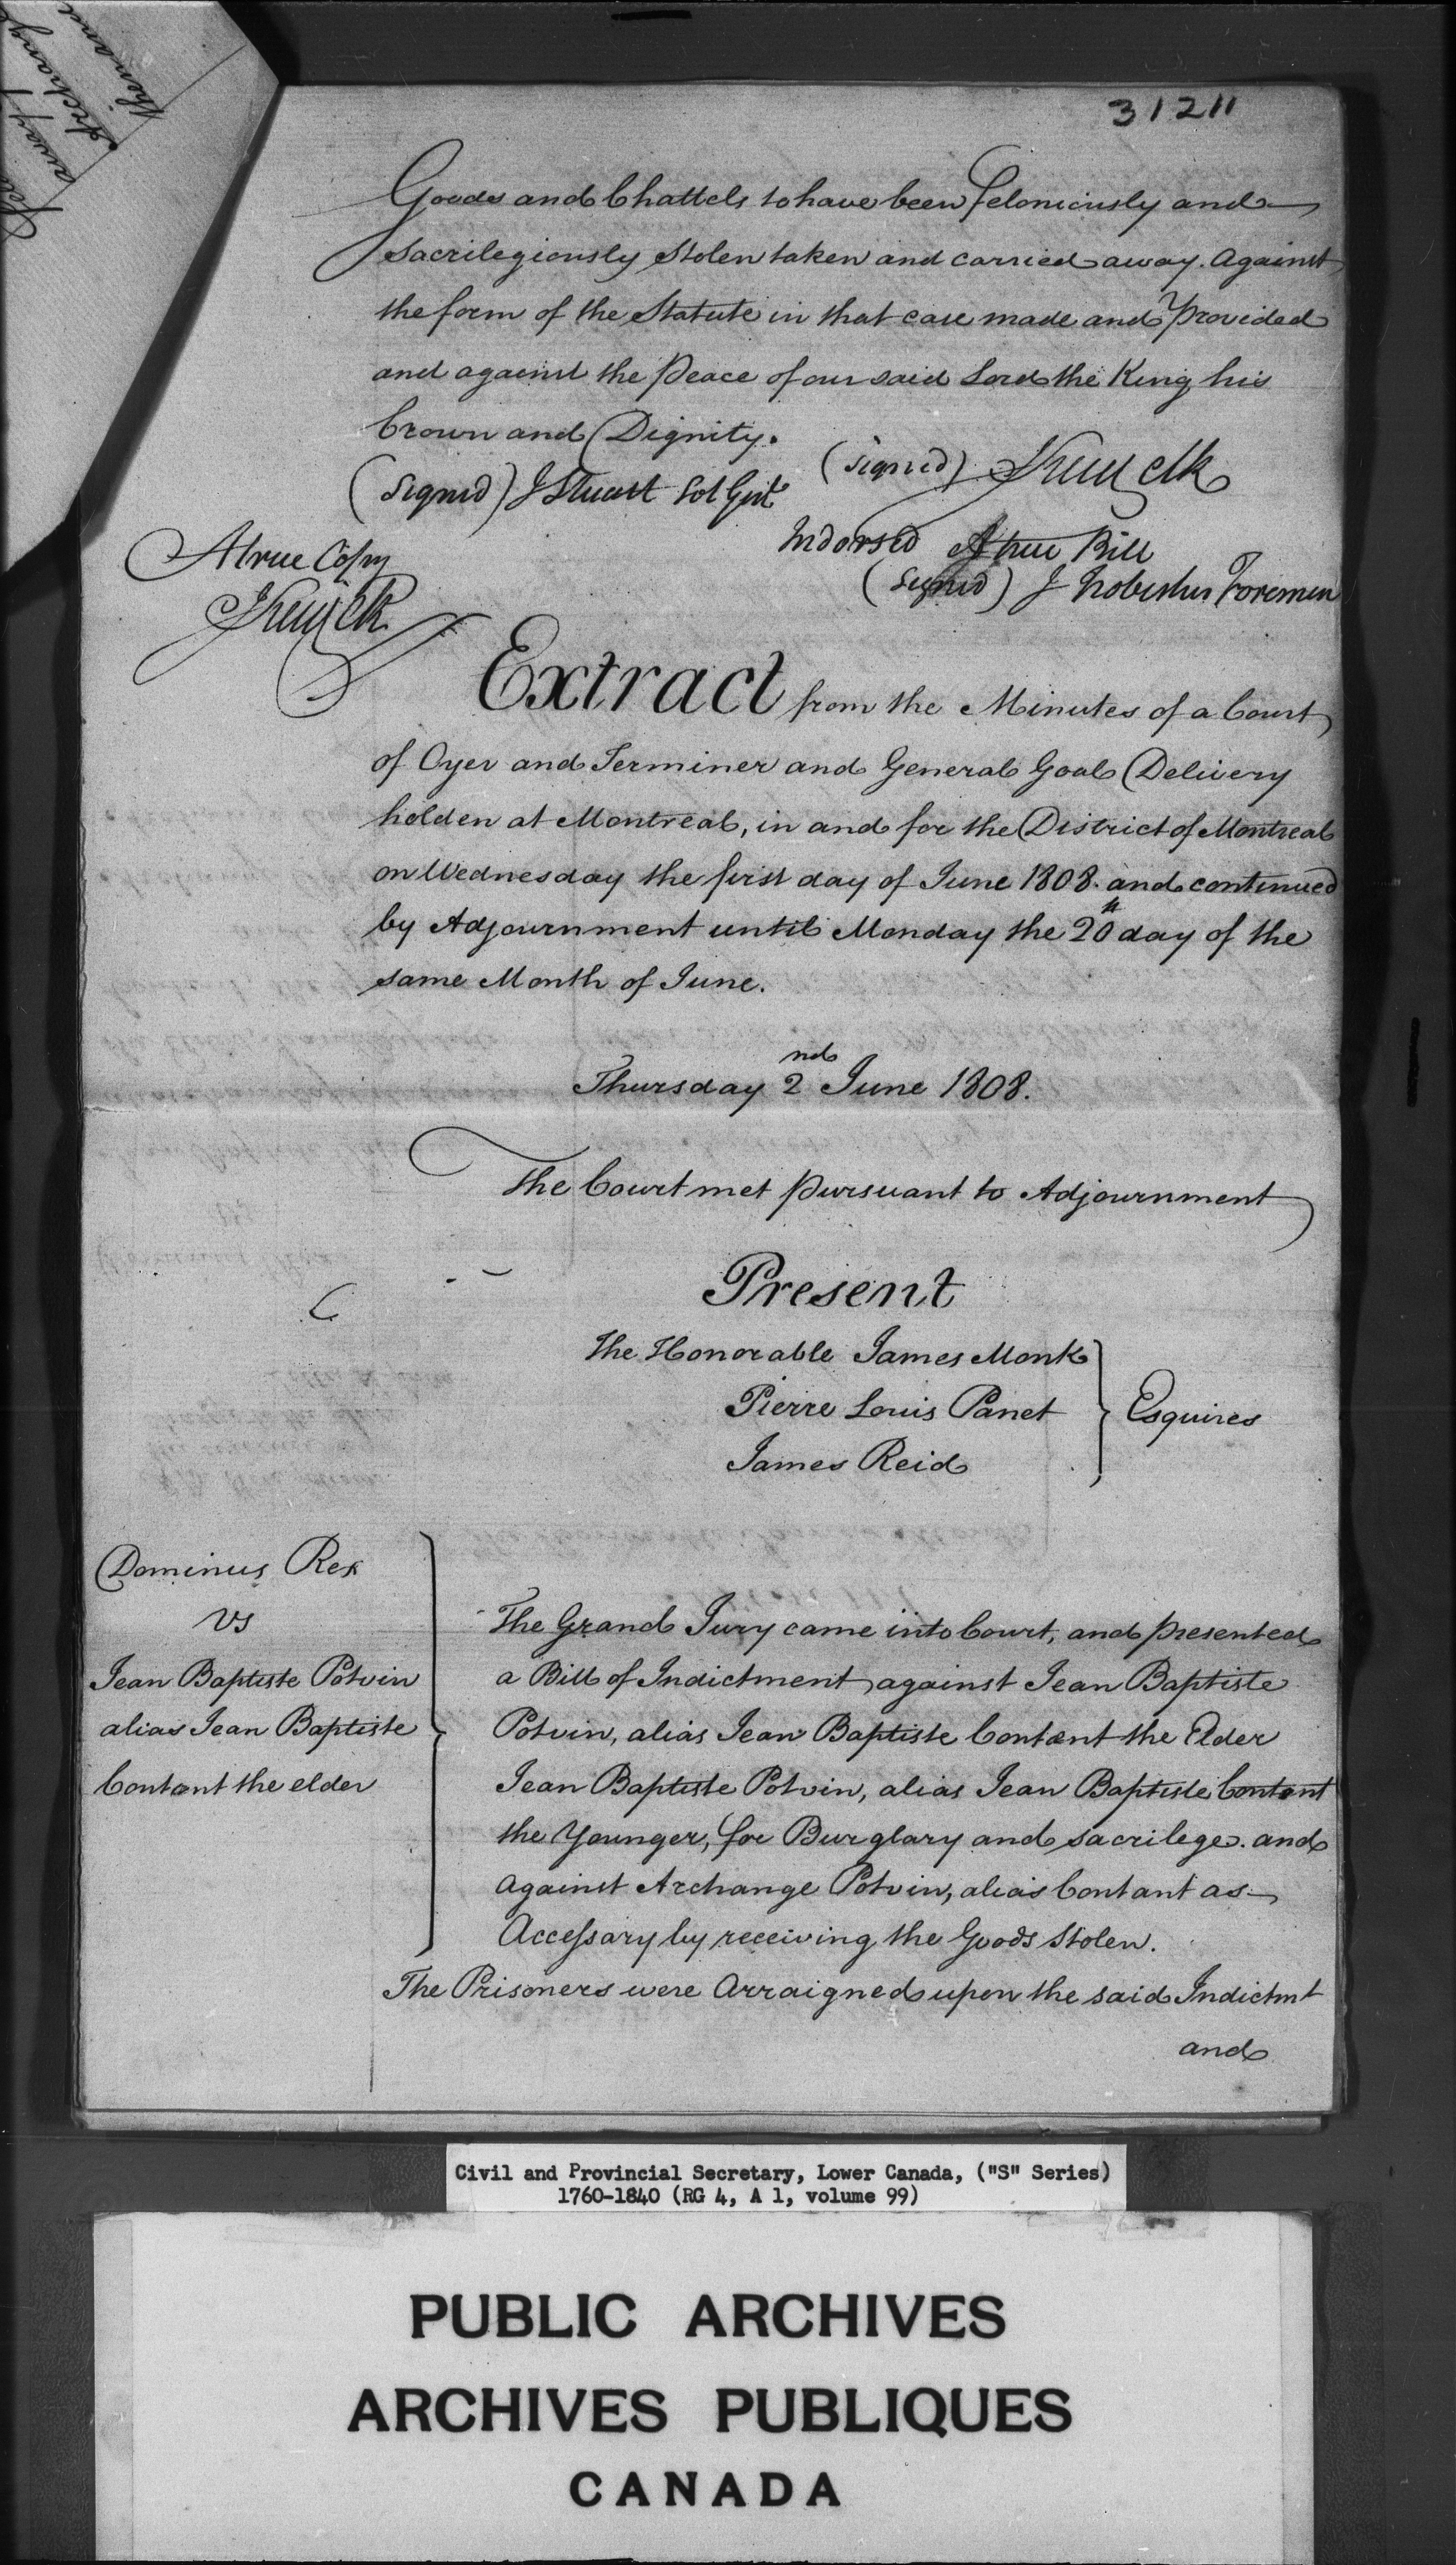 31211
Goods and Chattels to have been feloniously and
Sacrilegiously Stolen taken and carried away. against
the form of the Statute in that case made and Provided
and against the Peace of our said Lord the King his
Crown and Dignity.
(signed) Clk
(signed) J Stuart Sol Genl
Indorsed A true Bill
A true Copy
(signed) J Foreman
Extract from the Minutes of a Court
of Oyer and Terminer and General Goal Delivery
holden at Montreal, in and for the District of Montreal
on Wednesday the first day of June 1808. and continued
by Adjournment until Monday the 20th day of the
same Month of June.
Thursday 2nd June 1808.
The Court met pursuant to Adjournment
Present
The Honorable James Monk
Pierre Louis Panet } Esquires
James Reid
Dominus Rex
vs
Jean Baptiste Potvin
alias Jean Baptiste
Contant the elder
The Grand Jury came into Court, and presented
a Bill of Indictment against Jean Baptiste
Potvin, alias Jean Baptiste Contant the Elder
Jean Baptiste Potvin, alias Jean Baptiste Contant
the Younger, for Burglary and sacrilege. and
against Archange Potvin, alias Contant as
Accessary by receiving the Goods Stolen.
The Prisoners were Arraigned upon the said Indictmt
and
Civil and Provincial Secretary, Lower Canada, ("S" Series)
1760-1840 (RG 4, A 1, volume 99)
PUBLIC ARCHIVES
ARCHIVES PUBLIQUES
CANADA